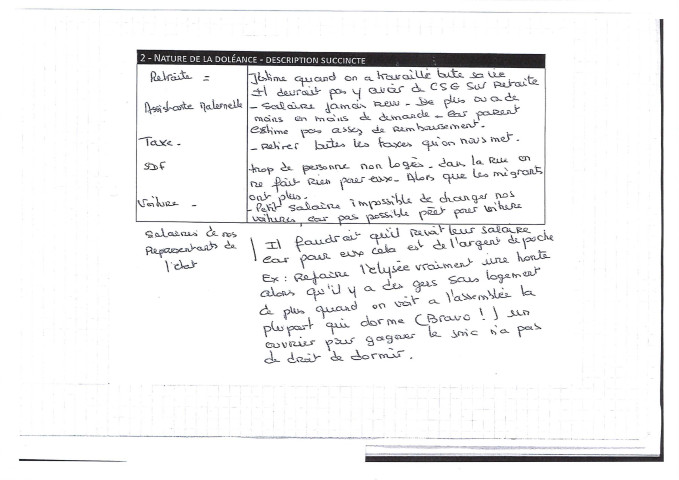 2 - NATURE DE LA DOLÉANCE - DESCRIPTION SUCCINCTE
Retraite = Jestime quand on a travaillé toute sa vie
Il devrait pas y avoir de CSG sur Retraite
Assistante Maternelle - Salaire jamais revu - De plus on a de
moins en moins de demande - Car parent
estime pas assez de remboursement.
Taxe - - Retirer toutes les taxes qu'on nous met.
SDF trop de personne non logés - dans la rue on
ne fait rien pour eux - Alors que les migrants
ont plus.
Voiture - - Petit salaire impossible de changer nos
voitures car pas possible prêt pour voiture
Salaires de nos
Représentants de
l'état
Il faudrait qu'il revoit leur salaire
car pour eux cela est de l'argent de poche
Ex : Refaire l'élysée vraiment une honte
alors qu'il y a des gens sans logement
de plus quand on voit a l'assemblée la
plupart qui dorme (Bravo !) un
ouvrier pour gagner le smic n'a pas
de droit de dormir.